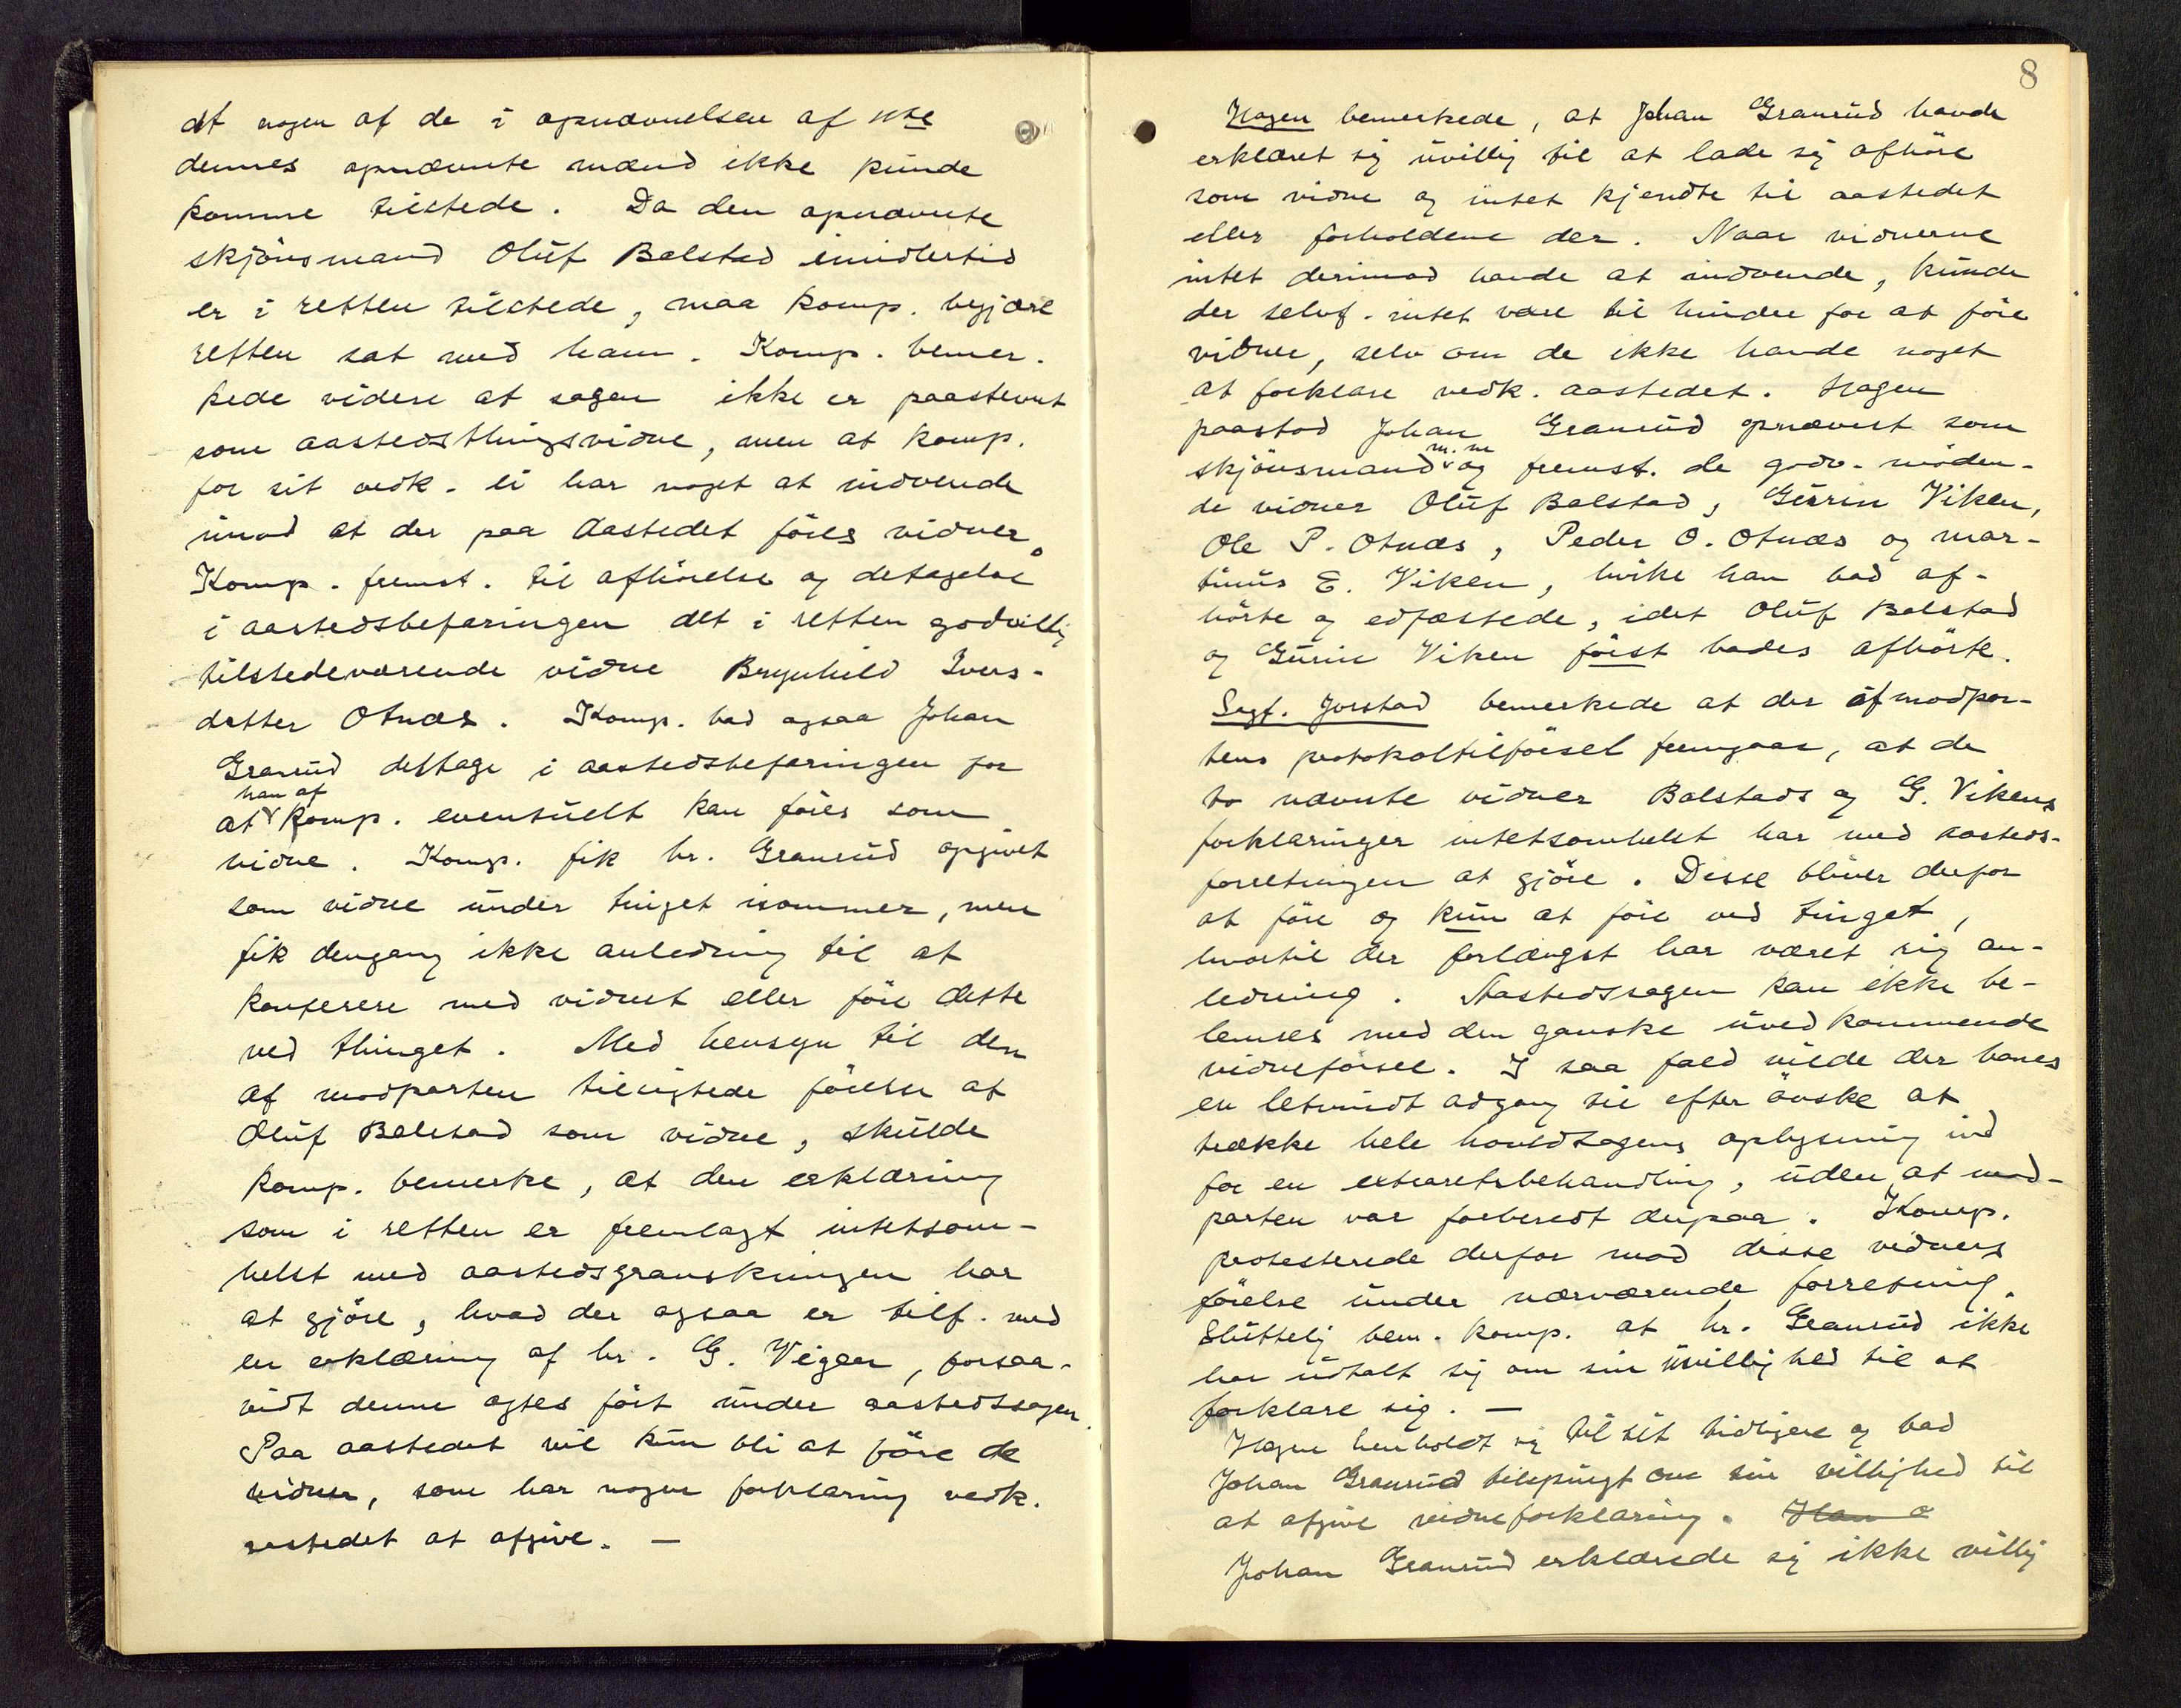 at nogen af de i opnævnelsen af
dennes opnævnte mænd ikke kunde
komme tilstede. Da den opnævnte
skjönsmand Oluf Balstad imidlertid
er i retten tilstede, maa komp. begjære
retten sat med ham. Komp. bemer-
kede videre at sagen ikke er paastevnt
som aastedsthingsvidne, men at komp.
for sit vedk. ei har noget at indvende
imod at der paa Aastedet föres vidner.
Komp. fremst. til afhörelse og deltagelse
i aastedsbefaringen det i retten godvillig
tilstedeværende vidne Brynhild Ivers-
datter Otnæs. Komp. bad ogsaa Johan
Granrud deltage i aastedsbefaringen for
han af
at komp. eventuelt kan föres som
vidne. Komp. fik hr. Granrud opgivet
som vidne under tinget isommer, men
fik dengang ikke anledning til at
konferere med vidnet eller före dette
ved thinget. Med hensyn til den
af modparten tilsigtede förelse af
Oluf Balstad som vidne, skulde
komp. bemerke, at den erklæring
som i retten er fremlagt intetsom-
helst med aastedsgranskningen har
at gjöre, hvad der ogsaa er tilf. med
en erklæring af hr. G. Vigen, forsaa-
vidt denne agtes fört under aastedssagen.
Paa aastedet vil kun bli at före de
vidner, som har nogen forklaring vedk.
aastedet at afgive. —
8
Hagen bemerkede, at Johan Granrud havde
erklæret sig uvillig til at lade sig afhöre
som vidne og intet kjendte til aastedet
eller forholdene der. Naar vidnerne
intet derimod havde at indvende, kunde
der selvf. intet være til hinder for at före
vidner, selv om de ikke havde noget
at forklare vedk. aastedet. Hagen
paastod Johan Granrud opnævnt som
m.m
skjönsmand og fremst. de godv. möden-
de vidner Oluf Balstad, Gurin Viken,
Ole P. Otnæs, Peder O. Otnæs og Mar-
tinus E. Viken, hvilke han bad af-
hörte og edfæstede, idet Oluf Balstad
og Gurin Viken först bades afhörte.
Sagf. Jorstad bemerkede at der af modpar-
tens protokoltilförsel fremgaar, at de
to nævnte vidner Balstads og G. Vikens
forklaringer intetsomhelst har med aasteds-
forretningen at gjöre. Disse bliver derfor
at före og kun at före ved tinget,
hvortil der forlængst har været rig an-
ledning. Aastedssagen kan ikke be-
lemses med den ganske uvedkommende
vidneförsel. I saa fald vilde der banes
en letvindt adgang til efter önske at
trække hele hovedsagens oplysning ind
for en extraretsbehandling, uden at mod-
parten var forberedt derpaa. Komp.
protesterede derfor mod disse vidners
förelse under nærværende forretning.
Sluttelig bem. komp. at hr. Granrud ikke
har udtalt sig om sin uvillighed til at
forklare sig. —
Hagen henholdt sig til sit tidligere og bad
Johan Granrud tilspurgt om sin villighed til
at afgive vidneforklaring. Han
Johan Granrud erklærede sig ikke villig